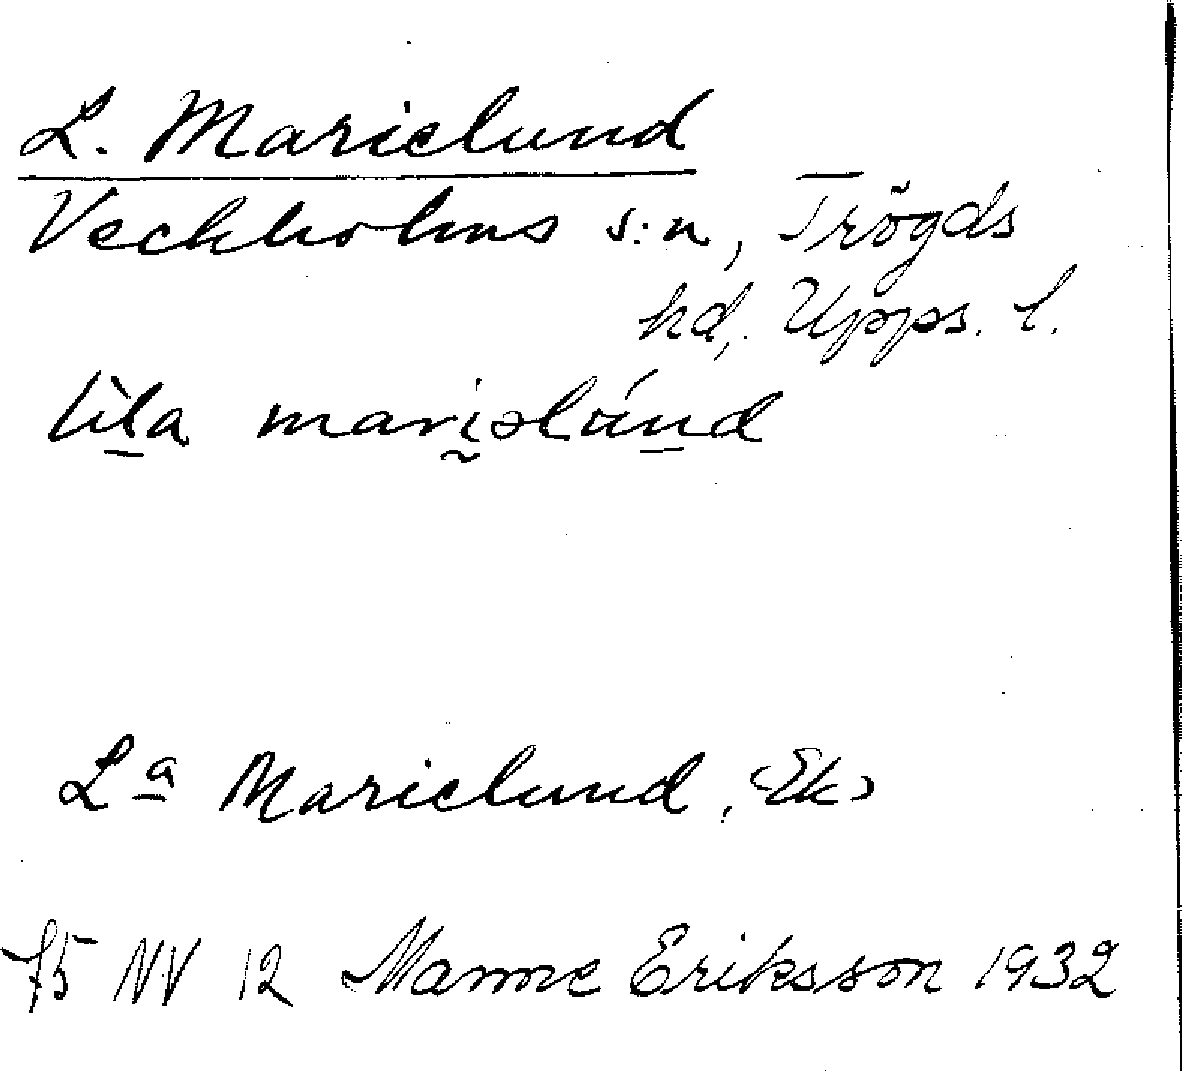 L. Marielund
Veckholms s:n, Trögds
hd, Upps. l.
lìla mariəlúnd
Lª Marielund, (Ek)
75 NV 12 Manne Eriksson 1932